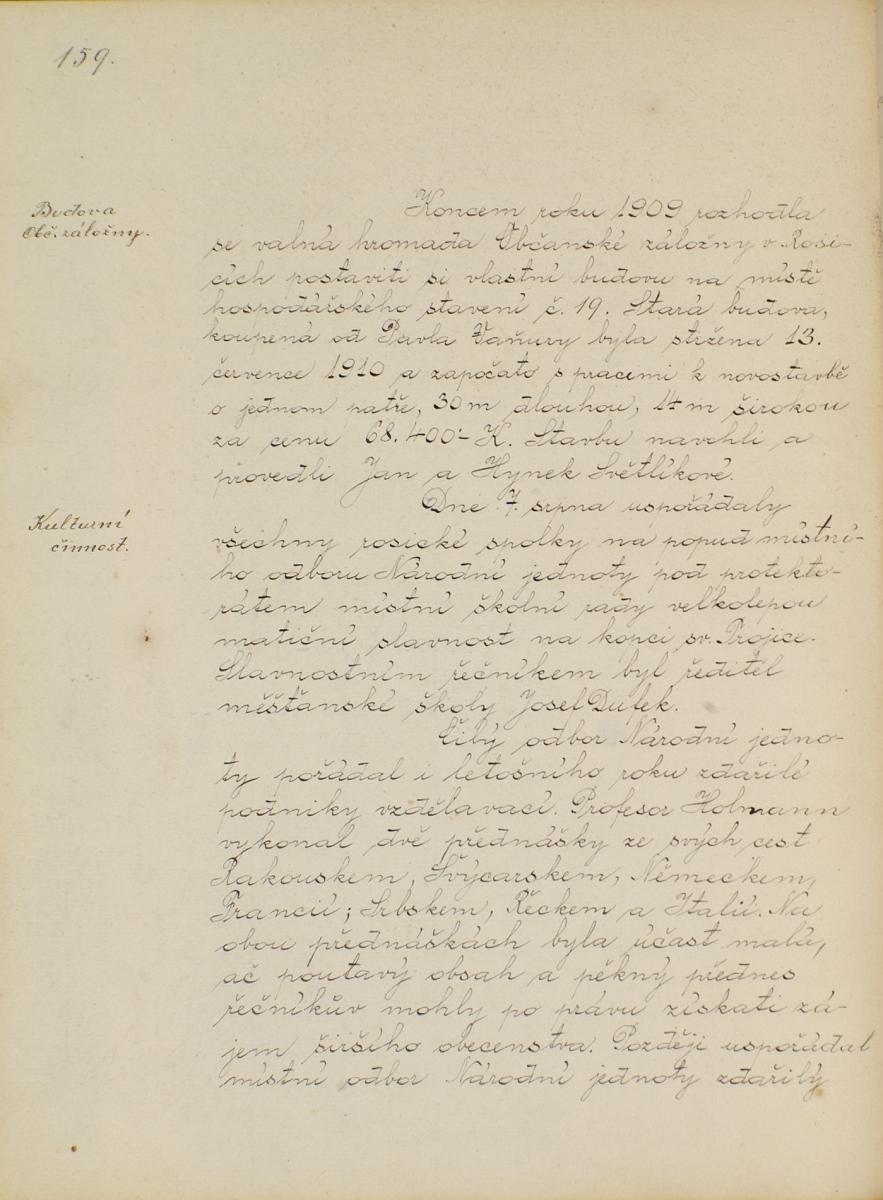 159.
Budova
Obč. záložny.
Koncem roku 1909 rozhodla
se valná hromada Občanské záložny v Rosi-
cích postaviti si vlastní budovu na místě
hospodářského stavení č. 19. Stará budova,
koupená od Pavla Vaňury byla stržena 13.
července 1910 a započato s pracemi k novostavbě
o jednom patře, 30 m dlouhou, 14 m širokou
za cenu 68.400·- K. Stavbu navrhli a
provedli Jan a Hynek Světlíkové.
Kulturní
činnost.
Dne 7. srpna uspořádaly
všechny rosické spolky na popud místní-
ho odboru Národní jednoty pod protekto-
rátem místní školní rady velkolepou
matiční slavnost na kopci sv. Trojice.
Slavnostním řečníkem byl ředitel
měšťanské školy Josef Dufek.
Čilý odbor Národní jedno-
ty pořádal i letošního roku zdařilé
podniky vzdělavací. Profesor Holmann
vykonal dvě přednášky ze svých cest
Rakouskem, Švýcarskem, Německem,
Francií; Srbskem, Řeckem a Italií. Na
obou přednáškách byla účast malá,
ač poutavý obsah a pěkný přednes
řečníkův mohly po právu získati zá-
jem širšího obecenstva. Později uspořádal
místní odbor Národní jednoty zdařilý